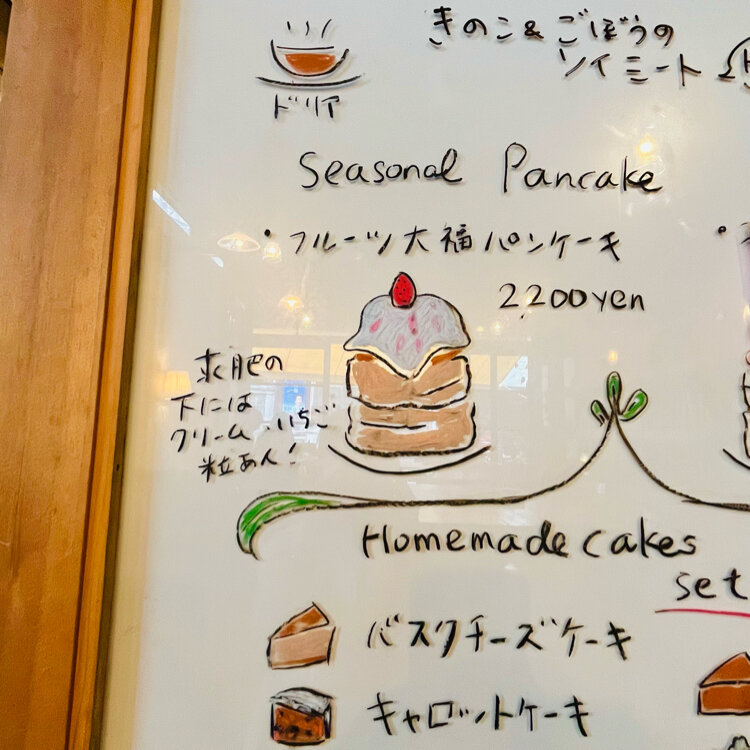 きのこ&ごぼうの
ソイミート
ドリア
Seasonal Pancake
・フルーツ大福パンケーキ
2,200yen
求肥の
下には
クリーム・いちご
粒あん!
Homemade cakes
set
バスクチーズケーキ
キャロットケーキ